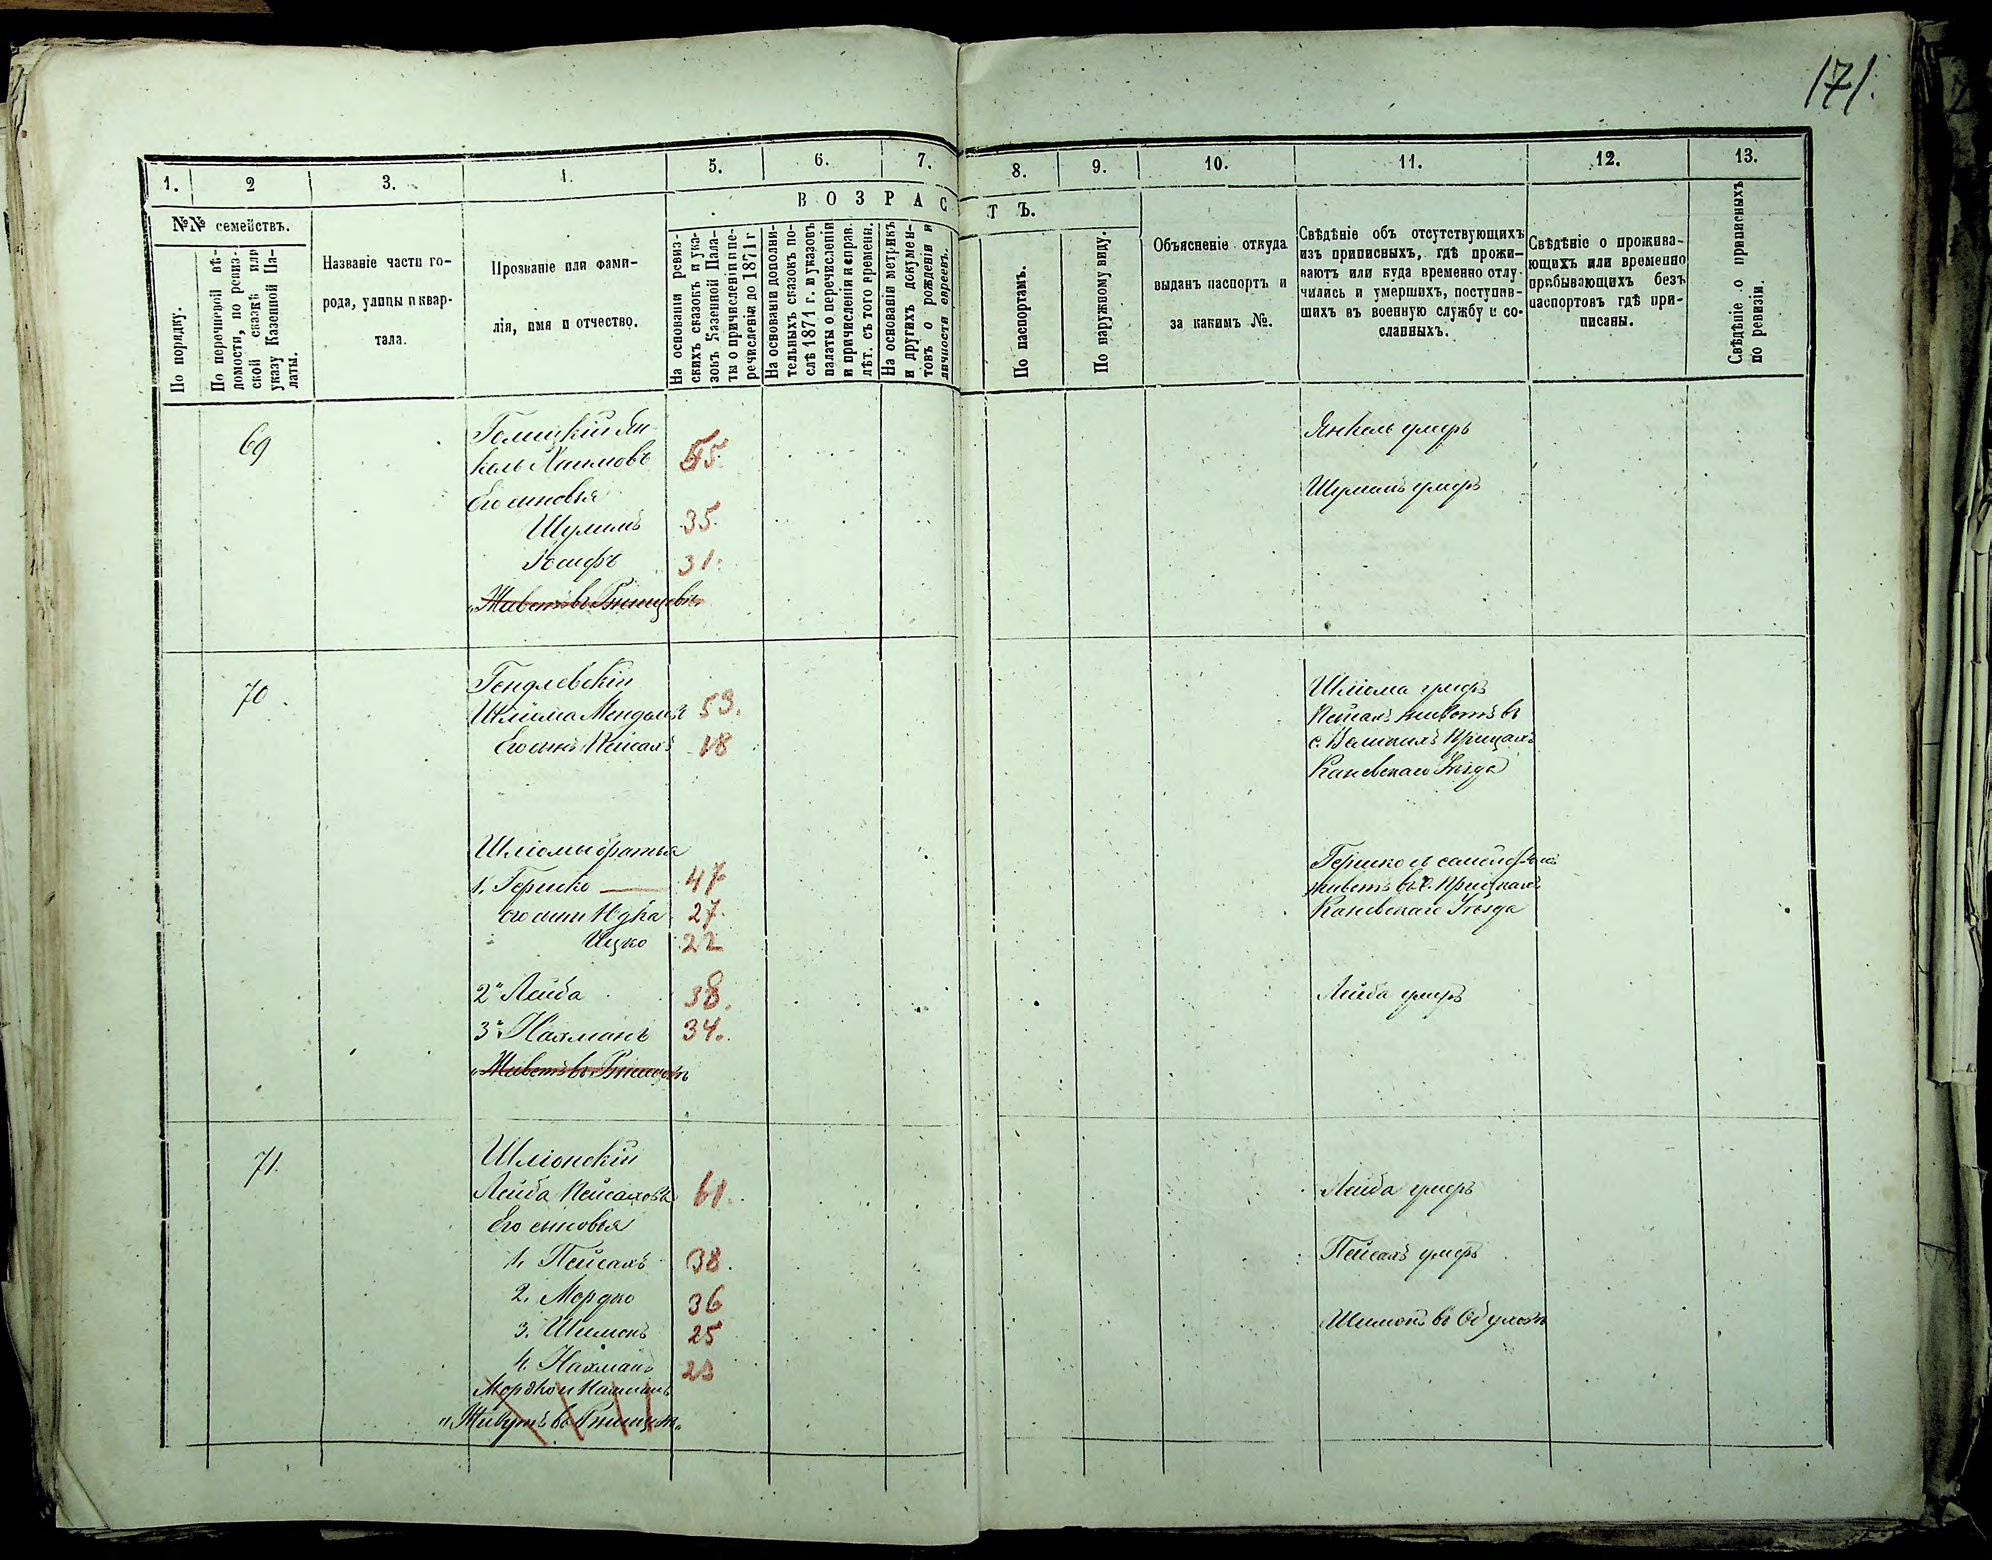 171.
1. 2 3. 4. 5. 6. 7. 8. 9. 10. 11. 12. 13.
№№ семействъ.
По порядку.
По перечневой вѣ-
домости, по ревиз-
ской сказкѣ или
указу Казенной Па-
латы.
Названіе части го-
рода, улицы и квар-
тала.
Прозваніе или фами-
лія, имя и отчество.
ВОЗРАСТЪ.
На основаніи ревиз-
скихъ сказокъ и ука-
зовъ Казенной Пала-
ты о причисленіи и пе-
речисленіи до 1871 г
На основаніи дополни-
тельныхъ сказокъ по-
слѣ 1871 г. и указовъ
палаты о перечисленіи
и причисленіи и справ.
лѣт. съ того времени.
На основаніи метрикъ
и другихъ докумен-
товъ о рожденіи и
личности евреевъ.
По паспортамъ.
По наружному виду.
Объясненіе откуда
выданъ паспортъ и
за какимъ №.
Свѣдѣніе объ отсутствующихъ
изъ приписныхъ, гдѣ прожи-
ваютъ или куда временно отлу-
чились и умершихъ, поступив-
шихъ въ военную службу и со-
сланныхъ.
Свѣдѣніе о прожива-
ющихъ или временно
пребывающихъ безъ
паспортовъ гдѣ при-
писаны.
Свѣдѣніе о приписныхъ
по ревизіи.
69
Голицкій Ян-
кель Хаимовъ 45
Его сыновья
Шулимъ 35
Іосифъ 31.
Янкель умеръ
Шулимъ умеръ
70
Гендлевскій
Шліома Мендель 53.
Его сынъ Пейсахъ 18
Шліома умеръ
Пейсахъ живетъ въ
с. Великихъ Прицкахъ
Каневскаго Уѣзда
Шліомы братья
1. Гершко 47
его сыни Юдка 27.
Ицко 22
Гершко и
живетъ въ с. Прицкахъ
Каневскаго Уѣзда
2" Лейба 38.
Лейба умеръ
3" Нахманъ 34.
71.
Шліонскій
Лейба Пейсаховъ 61.
Лейба умеръ
Его сыновья
1. Пейсахъ 38.
Пейсахъ умеръ
2. Мордко 36
3. Шимонъ 25
Шимонъ въ
4. Нахманъ 23
Мордко и Нахманъ
"Живутъ въ